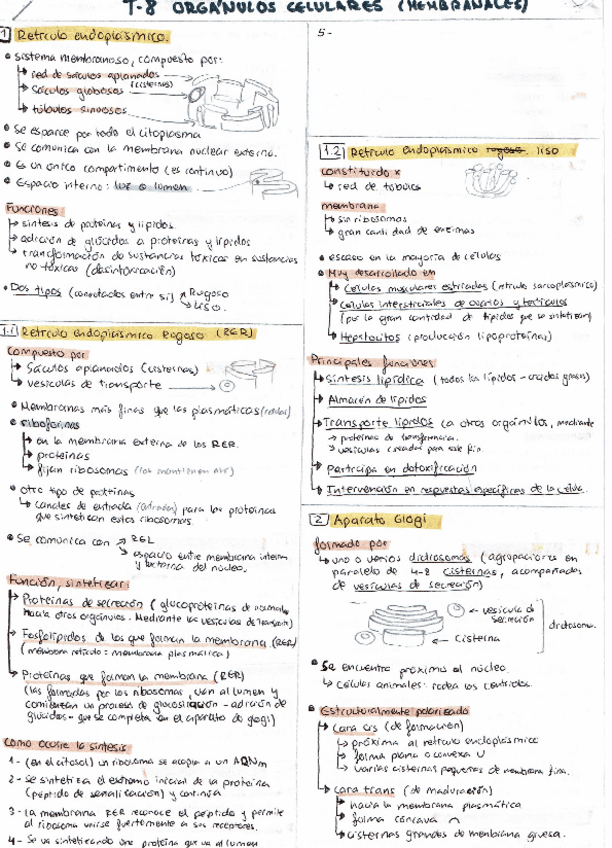 T-8 ORGÁNULOS CELULARES (MEMBRANALES)
1 Retículo endoplásmico.
• Sistema membranoso, compuesto por:
↳ red de sáculos aplanados
(cisternas)
↳ Sáculos globosos
↳ túbulos sinuosos
• Se esparce por todo el citoplasma
• Se comunica con la membrana nuclear externa.
• Es un único compartimento (es continuo)
• Espacio interno: luz o lumen
Funciones
↳ síntesis de proteínas y lípidos.
↳ adición de glúcidos a proteínas y lípidos
↳ transformación de sustancias tóxicas en sustancias
no tóxicas (desintoxicación)
• Dos tipos (conectados entre sí) Rugoso
Liso.
1.1 Retículo endoplásmico Rugoso (RER)
Compuesto por
↳ Sáculos aplanados (cisternas)
↳ vesículas de transporte
• Membranas más finas que las plasmáticas
• riboforinas
↳ en la membrana externa de los RER.
↳ proteínas
↳ fijan ribosomas
• Otro tipo de proteínas
↳ canales de entrada para las proteínas
que sintetizan estos ribosomas.
• Se comunica con → REL
espacio entre membrana interna
y externa del núcleo.
Función, sintetizar:
→ Proteínas de secreción (glucoproteínas de normal
hacia otros orgánulos. Mediante las vesículas de transporte)
→ Fosfolípidos de los que forman la membrana (RER)
(membrana retículo = membrana plasmática)
→ Proteínas que forman la membrana (RER)
(las formadas por los ribosomas, van al lumen y
comienzan un proceso de glucosilación - adición de
glúcidos - que se completa en el aparato de golgi)
Como ocurre la síntesis
1- (en el citosol) un ribosoma se acopla a un ARNm
2- Se sintetiza el extremo inicial de la proteína
(péptido de señalización) y continúa
3- La membrana RER reconoce el péptido y permite
al ribosoma unirse fuertemente a sus receptores.
4- Se va sintetizando una proteína que va al lumen
5-
1.2 Retículo endoplásmico rugoso. liso
constituido x
↳ red de túbulos
membrana
↳ sin ribosomas
↳ gran cantidad de enzimas
• escaso en la mayoría de células
• Muy desarrollado en
↳ Células musculares estriadas (retículo sarcoplásmico)
↳ Células intersticiales de ovarios y testículos
(por la gran cantidad de lípidos que se sintetizan)
↳ Hepatocitos (producción lipoproteínas)
Principales funciones
↳ Síntesis lipídica (todos los lípidos - ácidos grasos)
↳ Almacén de lípidos
↳ Transporte lípidos (a otros orgánulos, mediante
→ proteínas de transferencia.
→ vesículas creadas para este fin.
↳ Participa en detoxificación
↳ Intervención en respuestas específicas de la célula.
2 Aparato Glogi
formado por
↳ uno o varios dictiosomas (agrupaciones en
paralelo de 4-8 cisternas, acompañados
de vesículas de secreción)
vesícula de
secreción
cisterna
dictiosoma.
• Se encuentra próximo al núcleo
↳ Células animales: rodea los centriolos.
• Estructuralmente polarizado
→ cara cis (de formación)
↳ próxima al retículo endoplásmico
↳ forma plana o convexa U
↳ varias cisternas pequeñas de membrana fina.
→ cara trans (de maduración)
↳ hacia la membrana plasmática
↳ forma cóncava ∩
↳ cisternas grandes de membrana gruesa.